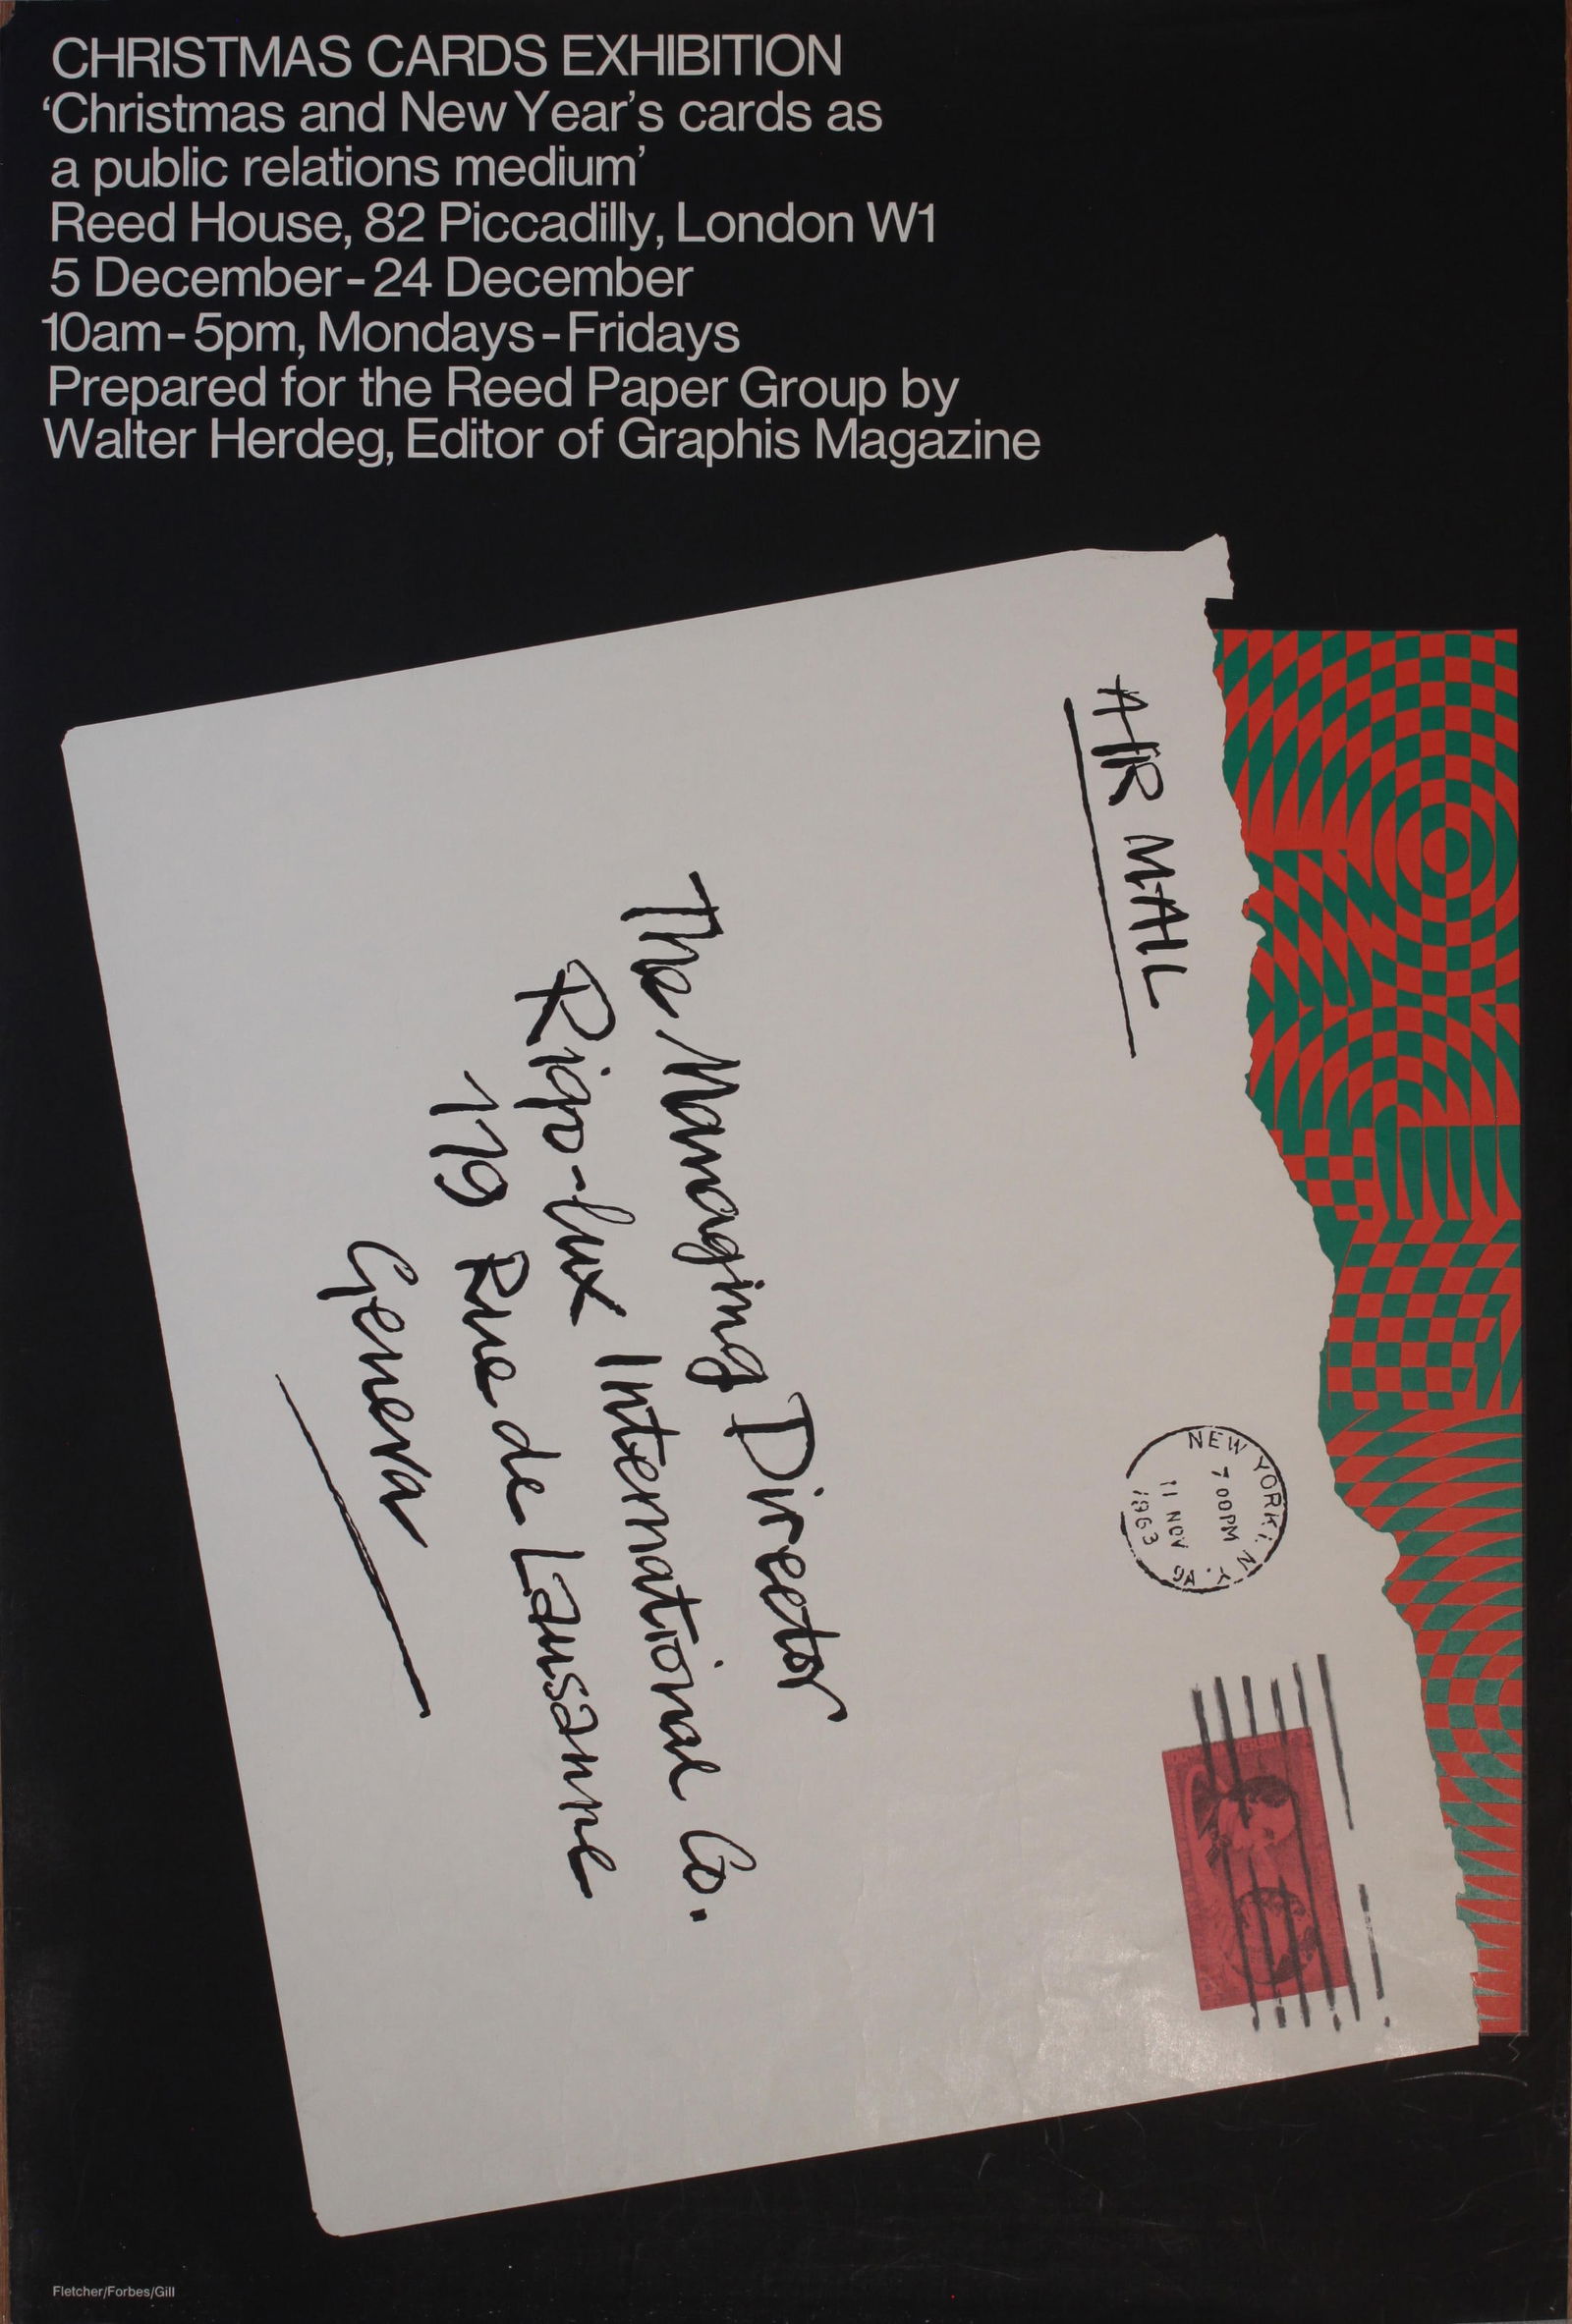 CHRISTMAS CARDS EXHIBITION
‘Christmas and New Year’s cards as
a public relations medium’
Reed House, 82 Piccadilly, London W1
5 December - 24 December
10am - 5pm, Mondays - Fridays
Prepared for the Reed Paper Group by
Walter Herdeg, Editor of Graphis Magazine
AIR MAIL
NEW YORK, N.Y.
7 00PM
11 NOV
1963
The Managing Director
Rigo-lux International Co.
179 Rue de Lausanne
Geneva
Fletcher/Forbes/Gill